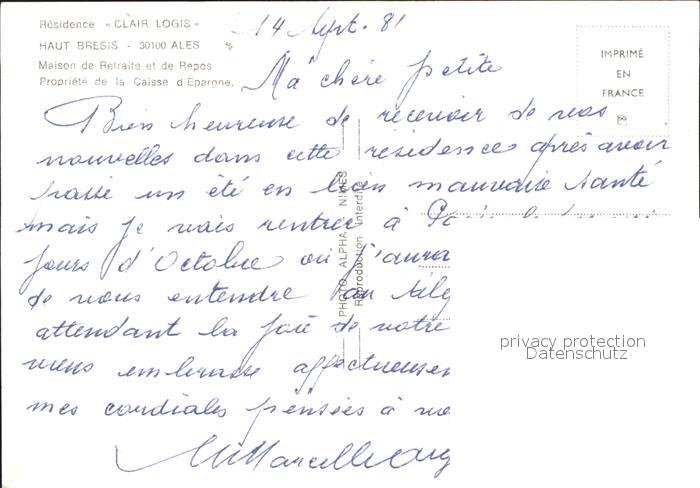 Résidence « CLAIR LOGIS »
HAUT BRESIS - 30100 ALES
Maison de Retraite et de Repos
Propriété de la Caisse d'Epargne.
14 Sept. 81
IMPRIMÉ
EN
FRANCE
Ma chère petite
Bien heureuse de recevoir de vos
nouvelles dans cette résidence après avoir
passé un été en bien mauvaise santé
mais je vais rentrer à
jours d'Octobre où j'aurai
de vous entendre au
attendant la joie de votre
vous embrasse affectueusem
mes cordiales pensées à vo
PHOTO ALPHA NIMES
Reproduction interdite
privacy protection
Datenschutz